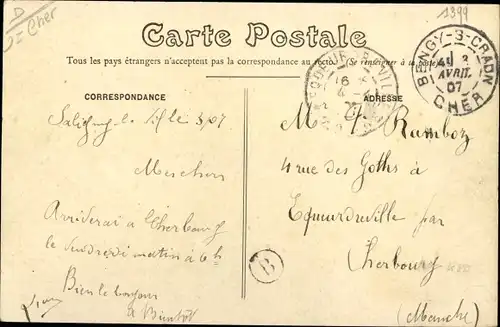 D
= Cher
1399
Carte Postale
Tous les pays étrangers n'acceptent pas la correspondance au recto (Se renseigner à la poste)
BENGY-S-CRAON
3
AVRIL
07
CHER
CORRESPONDANCE
ADRESSE
16
4
Saligny le 3/07
M. Ramboz
4 rue des Goths à
Equeurdreville par
Cherbourg
(Manche)
Arriverai à Cherbourg
le Vendredi matin à 6 h
Bien le bonjour
à Bientôt
B